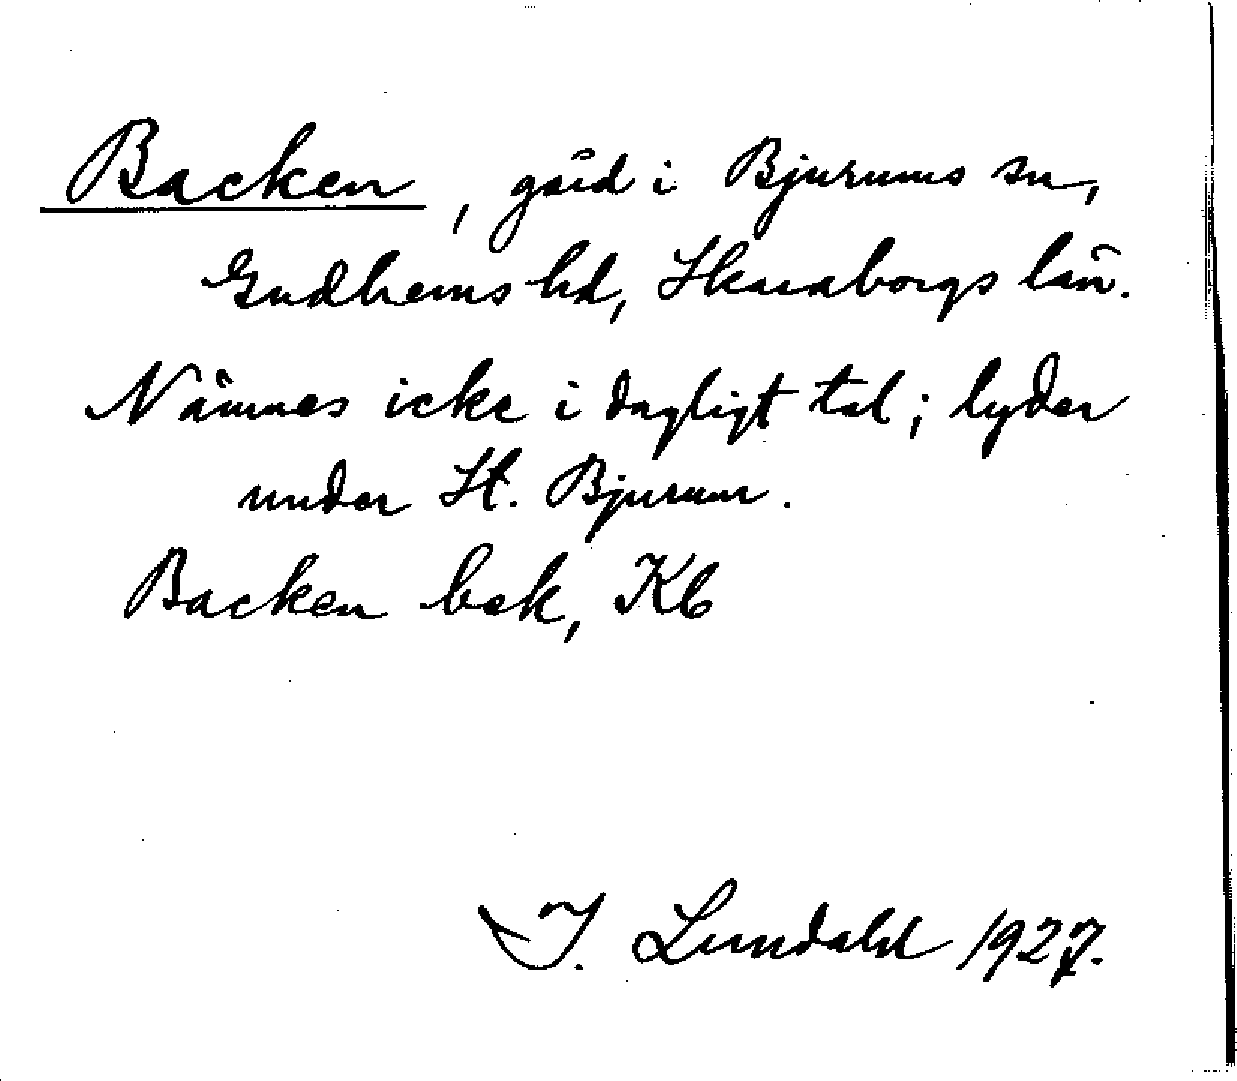 Backen, gård i Bjurums sn,
Gudhems hd, Skaraborgs län.
Nämnes icke i dagligt tal; lyder
under St. Bjurum.
Backen bok, Kb
I. Lundahl 1927.